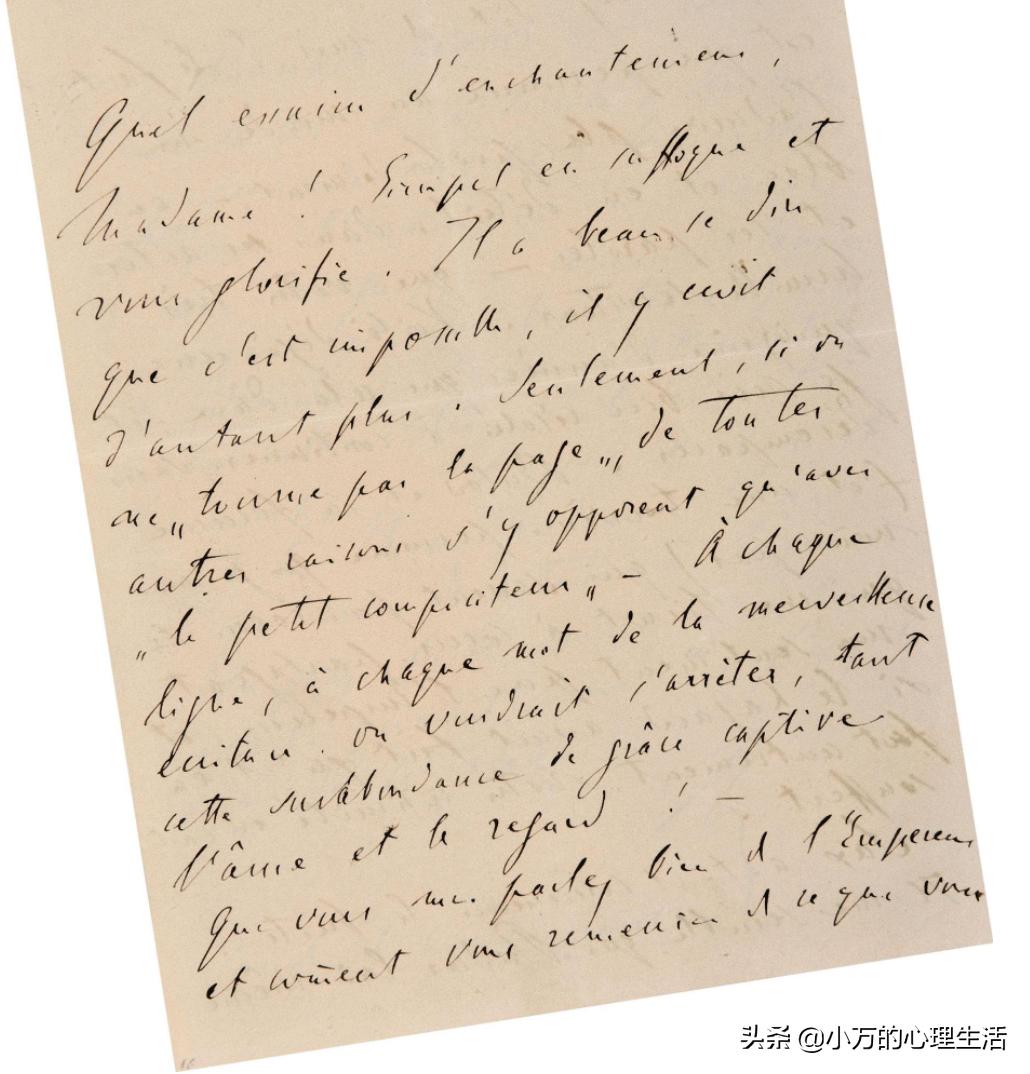 Quel essaim d'enchantemens,
Madame! Simpel en suffoque et
vous glorifie. Il a beau se dire
que c'est impossible, il y croit
d'autant plus. Seulement, si on
ne „tourne pas la page„, de toutes
autres raisons s'y opposent qu'avec
„le petit compositeur„ – À chaque
ligne, à chaque mot de la merveilleuse
écriture on voudrait s'arrêter, tant
cette surabondance de grâce captive
l'âme et le regard! –
Que vous me parlez bien de l'Empereur
et coment vous remercier de ce que vous
头条 @小万的心理生活